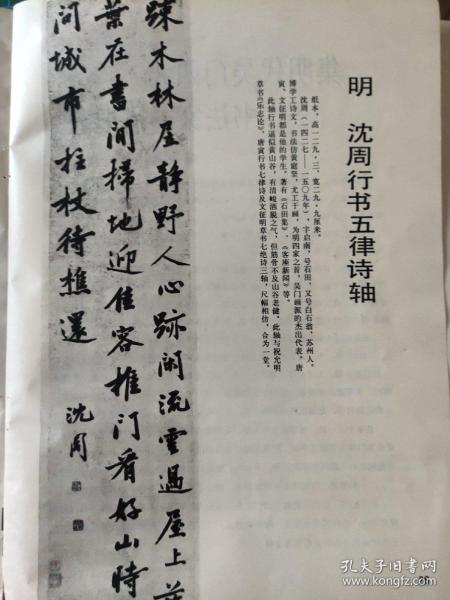 明 沈周行书五律诗轴
纸本，高一二九·三，宽二九·九厘米。
沈周（一四二七——一五〇九年），字启南，号石田，又号白石翁，苏州人。
博学工诗文，书法仿黄庭坚，尤工于画，为明四家之首，吴门画派的杰出代表，唐
寅、文征明都是他的学生。著有《石田集》、《客座新闻》等。
此轴行书逼似黄山谷，有清峻洒脱之气，但筋骨不及山谷老健，此轴与祝允明
草书《乐志论》、唐寅行书七律诗及文征明草书七绝诗三轴，尺幅相仿，合为一堂。
疎木林屋静野人心跡闲流云过屋上
叶在书间掃地迎佳客推门看好山时
问城市拄杖待樵还
沈周
孔夫子旧书网